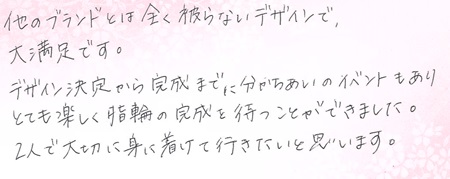 他のブランドとは全く被らないデザインで、
大満足です。
デザイン決定から完成までに分かちあいのイベントもあり
とても楽しく指輪の完成を待つことができました。
2人で大切に身に着けて行きたいと思います。